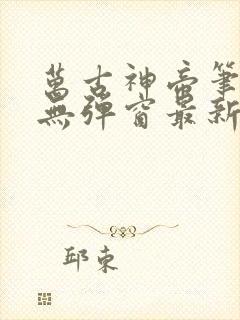 萬古神帝筆
無彈窗最新
邱東